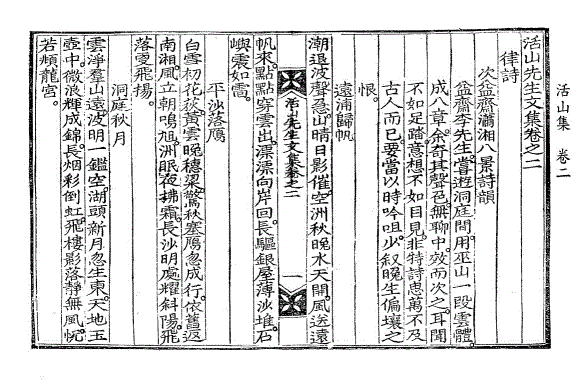 活山集 卷二
活山先生文集卷之二
律詩
次益齋瀟湘八景詩韻
益齋李先生嘗遊洞庭間用巫山一段雲體
成八章余奇其聲色無聊中效而次之耳聞
不如足踏意想不如目見非特詩思萬不及
古人而已要當以時吟咀少叙晚生偏壤之
恨
遠浦歸帆
潮退波聲急山晴日影催空洲秋晚水天開風送遠
活山先生文集卷之二 一
帆來點點穿雲出漂漂向岸回長驅銀屋薄沙堆石
嶼震如雷
平沙落鴈
白雪初花荻黃雲晚穗粱驚秋塞鴈忽成行依舊返
南湘風立朝鳴旭洲眠夜拂霜長沙明處耀斜陽飛
落更飛揚
洞庭秋月
雲淨羣山遠波明一鑑空湖頭新月忽生東天地玉
壺中微浪輝成錦長烟彩倒虹飛樓影落靜無風怳
若頫龍宮